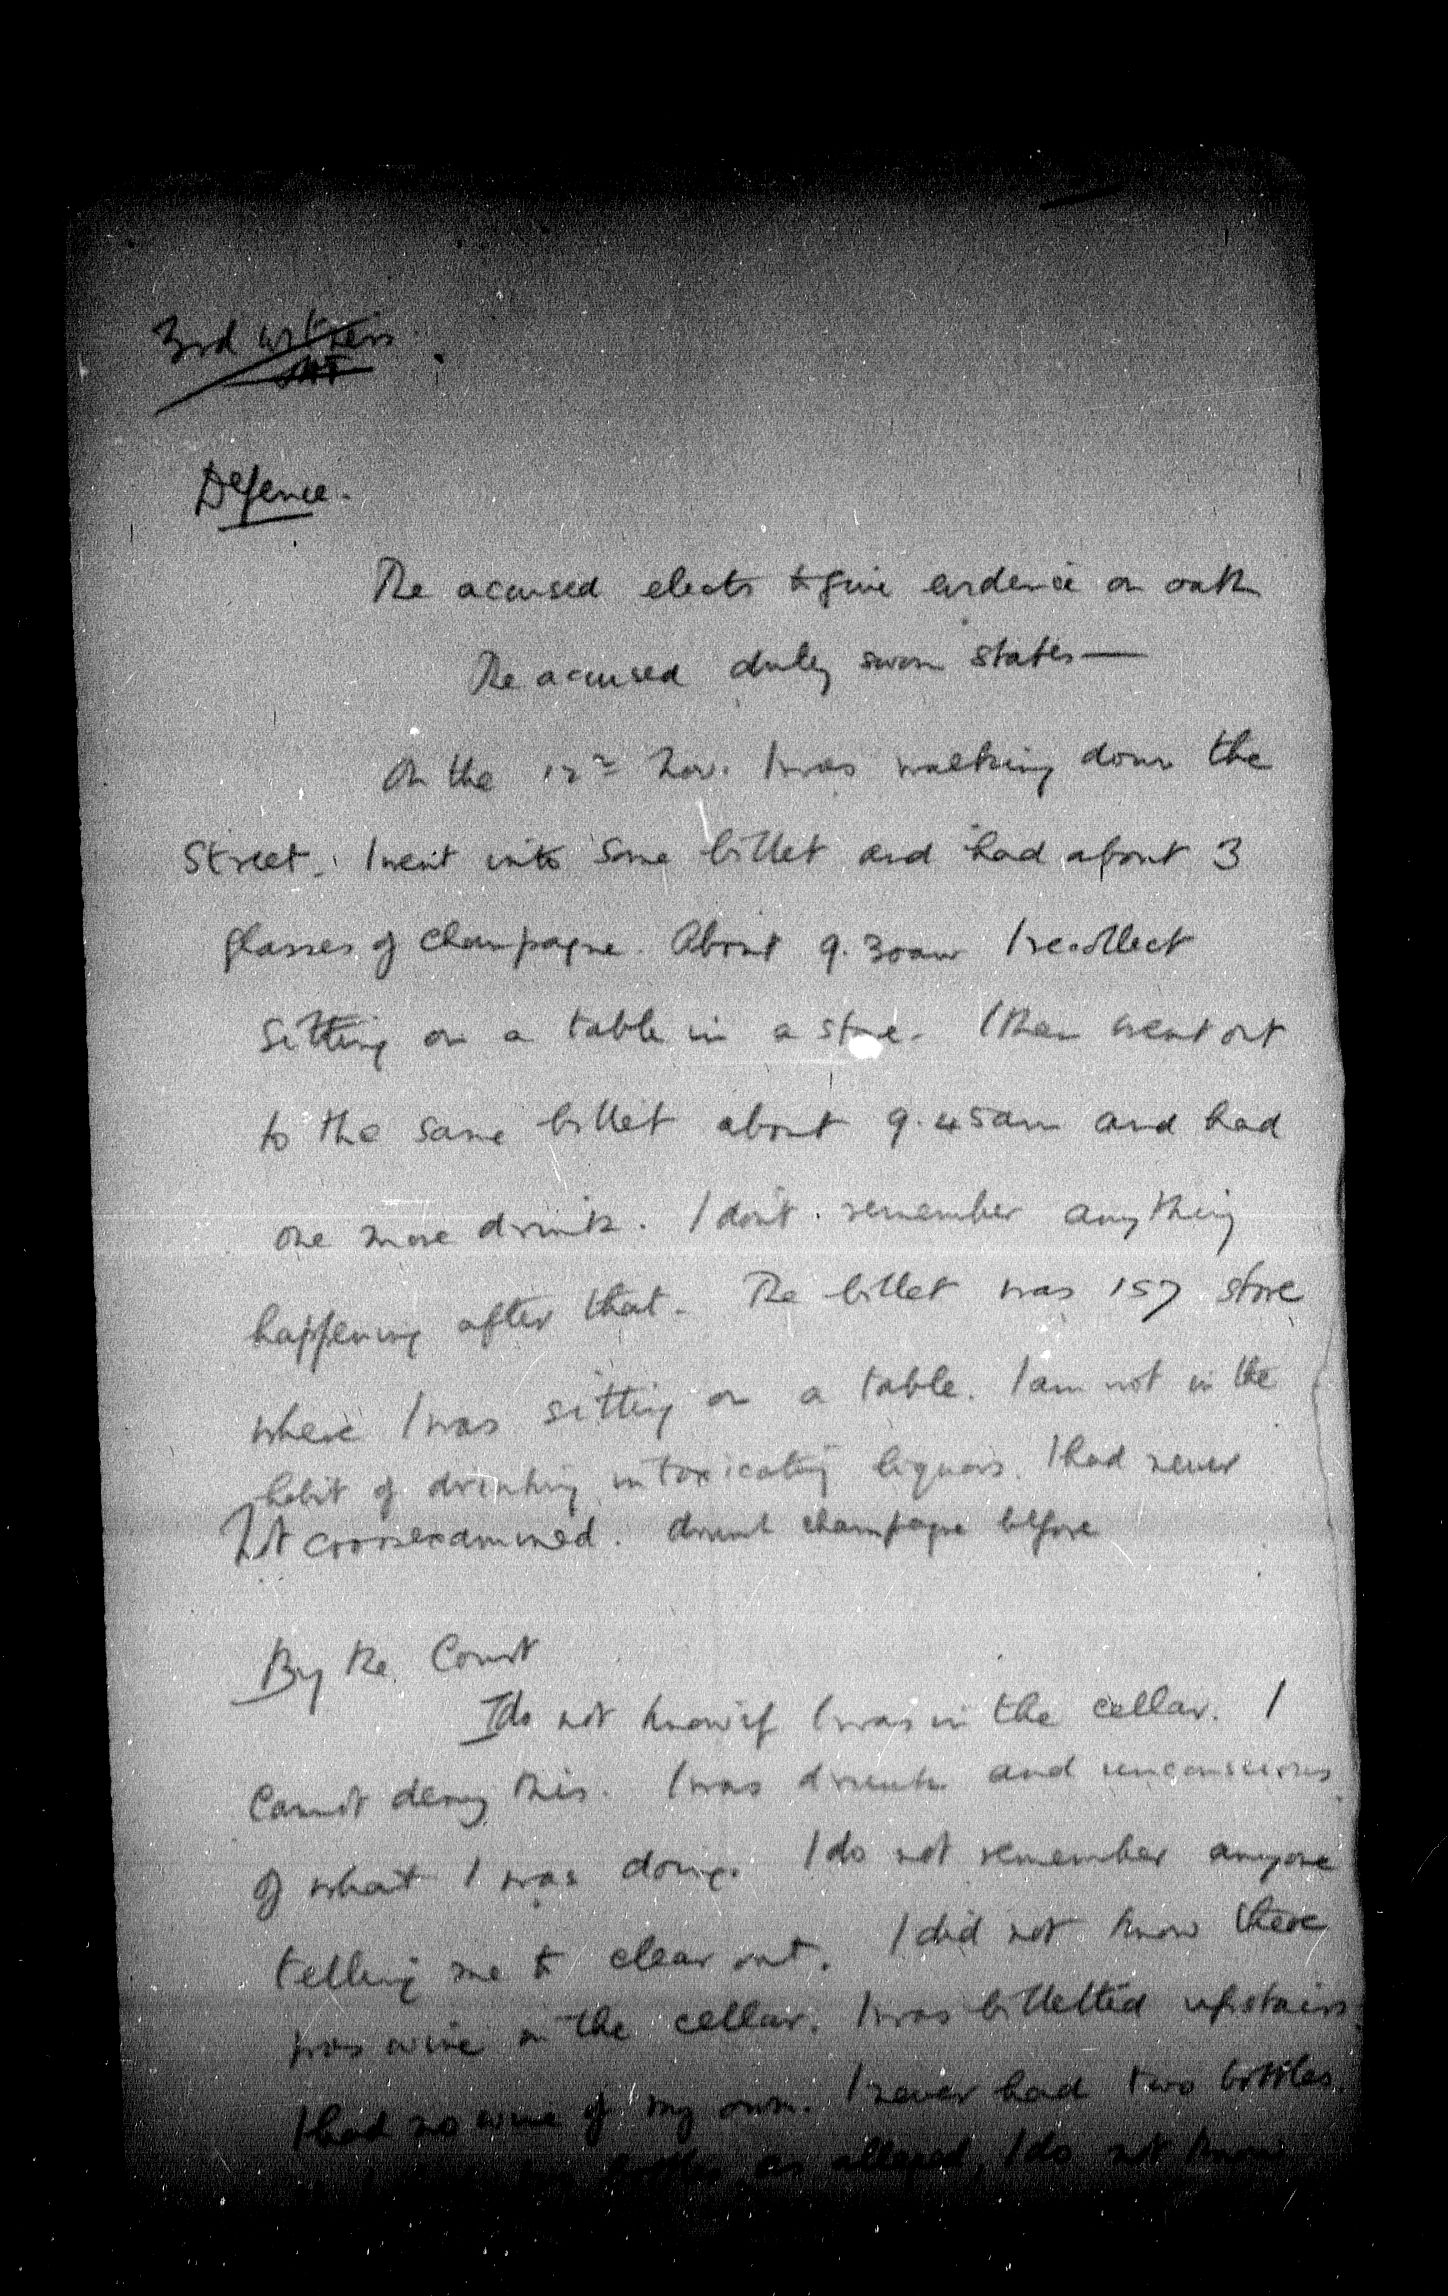 3rd witness
Defence.
The accused elects to give evidence on oath
The accused duly sworn states —
On the 12th Nov. I was walking down the
Street. I went into some billet and had about 3
glasses of champagne. About 9.30am I recollect
sitting on a table in a store. I then went out
to the same billet about 9.45am and had
one more drink. I don't remember anything
happening after that. The billet was 157 store
where I was sitting on a table. I am not in the
habit of drinking intoxicating liquors. I had never
Not crossexamined. drunk champagne before
By the Court
I do not know if I was in the cellar. I
cannot deny this. I was drunk and unconscious
of what I was doing. I do not remember anyone
telling me to clear out. I did not know there
was wine in the cellar. I was billetted upstairs
I had no wine of my own. I never had two bottles
two bottles as alleged, I do not know